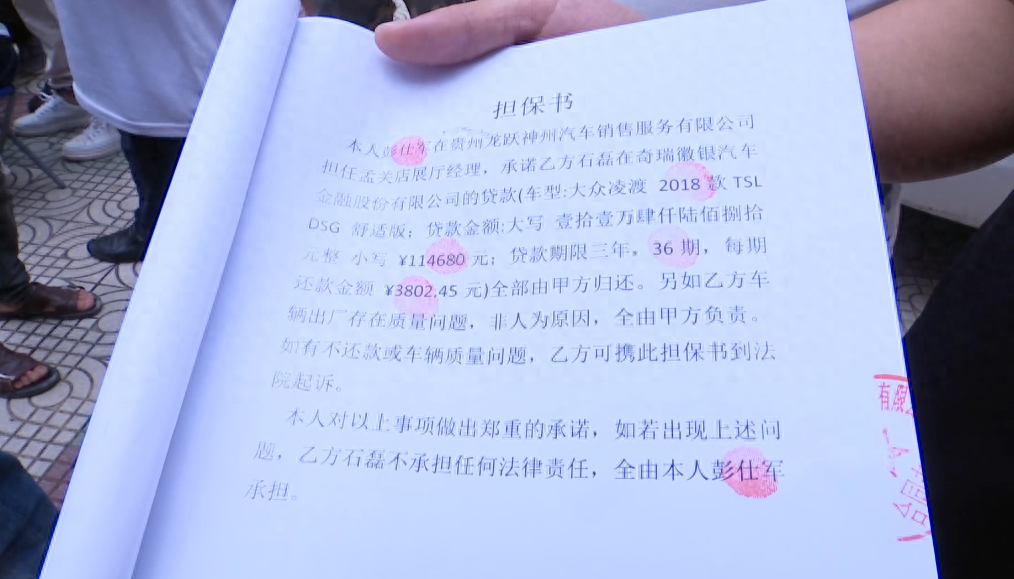 担保书
本人彭仕军在贵州龙跃神州汽车销售服务有限公司
担任孟关店展厅经理，承诺乙方石磊在奇瑞徽银汽车
金融股份有限公司的贷款(车型:大众凌渡 2018 款 TSL
DSG 舒适版；贷款金额:大写 壹拾壹万肆仟陆佰捌拾
元整 小写 ¥114680 元；贷款期限三年，36 期，每期
还款金额 ¥3802.45 元)全部由甲方归还。另如乙方车
辆出厂存在质量问题，非人为原因，全由甲方负责。
如有不还款或车辆质量问题，乙方可携此担保书到法
院起诉。
本人对以上事项做出郑重的承诺，如若出现上述问
题，乙方石磊不承担任何法律责任，全由本人彭仕军
承担。
有限